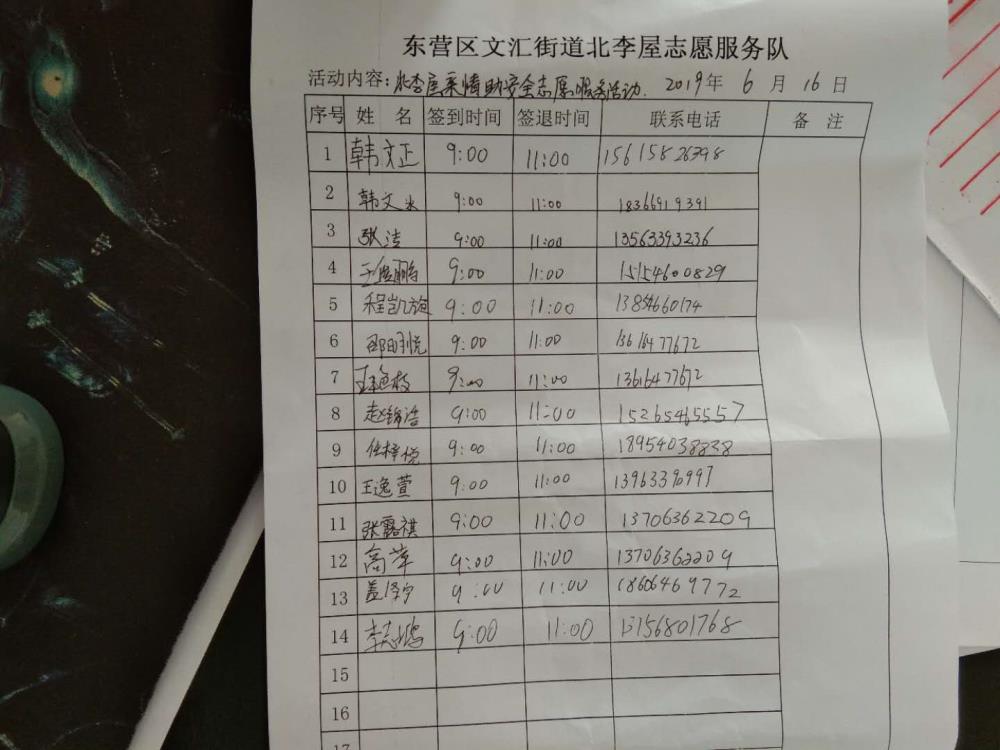 东营区文汇街道北李屋志愿服务队
活动内容:北李屋亲情助安全志愿服务活动. 2019年 6 月 16 日
序号 姓 名 签到时间 签退时间 联系电话 备 注
1 韩文正 9:00 11:00 15615826398
2 韩文 9:00 11:00 18366919391
3 张洁 9:00 11:00 13563393236
4 9:00 11:00 15154600829
5 程凯旋 9:00 11:00
6 邵明悦 9:00 11:00
7 9:00 11:00 13616477672
8 赵锦浩 9:00 11:00 15265465557
9 任梓悦 9:00 11:00 18954038838
10 王逸萱 9:00 11:00 13963370997
11 张露祺 9:00 11:00 13706362209
12 高萍 9:00 11:00 13706362209
13 盖泽宁 9:00 11:00 18606469772
14 李志鹏 9:00 11:00 13156801768
15
16
17